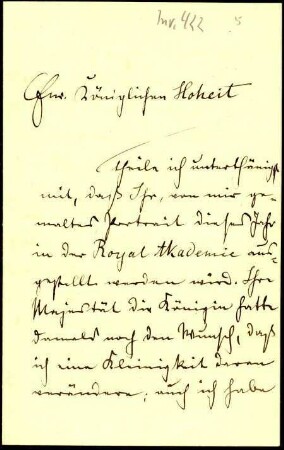 Inv. 422
Ew. Königlichen Hoheit
theile ich unterthänigst
mit, daß Ihr, von mir ge-
maltes Portrait dieses Jahr
in der Royal Akademie aus-
gestellt werden wird. Ihre
Majestät die Königin hatte
damals noch den Wunsch, daß
ich eine Kleinigkeit daran
verändere; auch ich habe